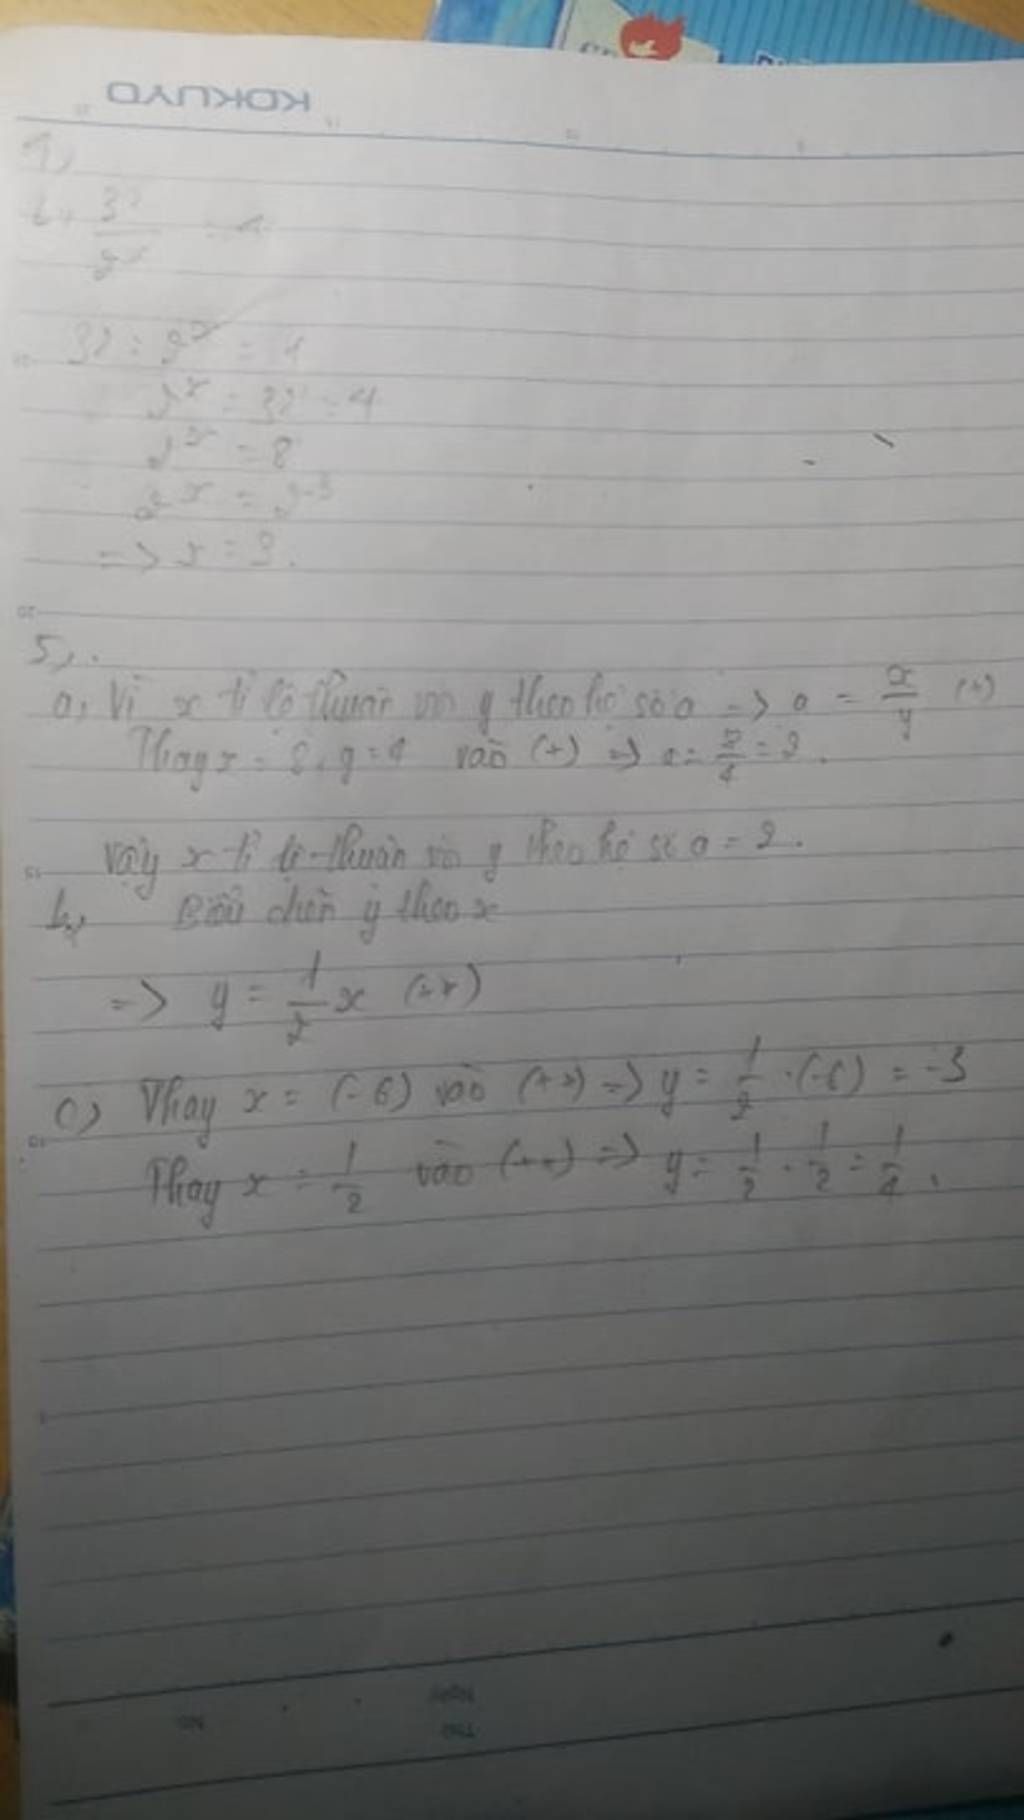 KOKUYO
32 : 2^x = 4
2^x = 32 : 4
2^x = 8
2^x = 2^3
=> x = 3.
5,.
a, Vì x tỉ lệ thuận với y theo hệ số a => a = x/y (*)
Thay x = 8, y = 4 vào (*) => a = 8/4 = 2.
Vậy x tỉ lệ thuận với y theo hệ số a = 2.
b, Biểu diễn y theo x
=> y = 1/2 x (**)
c, Thay x = (-6) vào (**) => y = 1/2 . (-6) = -3
Thay x = 1/2 vào (**) => y = 1/2 . 1/2 = 1/4.